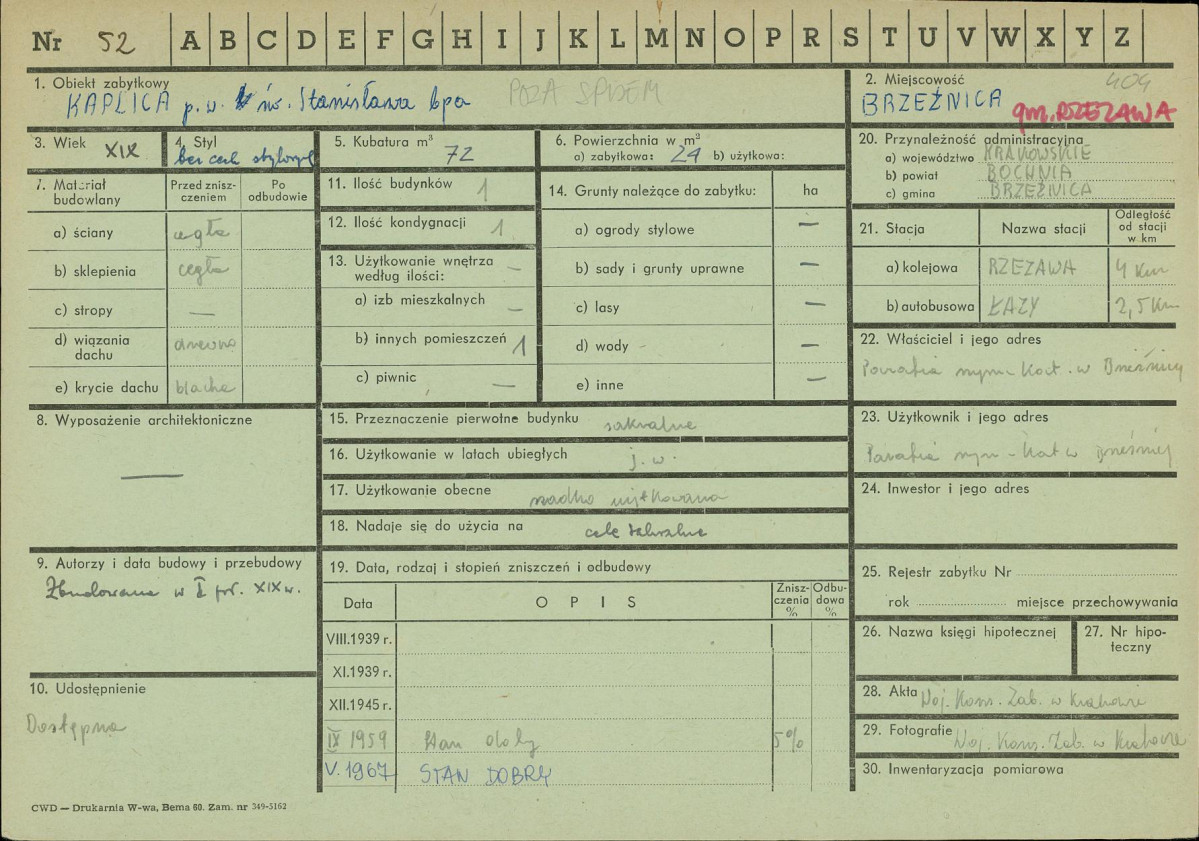 Nr 52 A B C D E F G H I J K L M N O P R S T U V W X Y Z
1. Obiekt zabytkowy
KAPLICA p. w. św. Stanisława bpa POZA SPISEM
2. Miejscowość 404
BRZEŹNICA gm. RZEZAWA
3. Wiek XIX
4. Styl
bez cech stylowych
5. Kubatura m³
72
6. Powierzchnia w m²
a) zabytkowa: 24 b) użytkowa:
7. Materiał budowlany
Przed znisz-
czeniem
Po
odbudowie
a) ściany cegła
b) sklepienia cegła
c) stropy —
d) wiązania
dachu drewno
e) krycie dachu blacha
8. Wyposażenie architektoniczne
—
9. Autorzy i data budowy i przebudowy
Zbudowana w I poł. XIX w.
10. Udostępnienie
Dostępna
11. Ilość budynków 1
12. Ilość kondygnacji 1
13. Użytkowanie wnętrza
według ilości: —
a) izb mieszkalnych —
b) innych pomieszczeń 1
c) piwnic —
14. Grunty należące do zabytku: ha
a) ogrody stylowe —
b) sady i grunty uprawne —
c) lasy —
d) wody —
e) inne —
15. Przeznaczenie pierwotne budynku sakralne
16. Użytkowanie w latach ubiegłych j. w.
17. Użytkowanie obecne rzadko użytkowana
18. Nadaje się do użycia na cele sakralne
19. Data, rodzaj i stopień zniszczeń i odbudowy
Data OPIS Znisz-
czenia
%
Odbu-
dowa
%
VIII.1939 r.
XI.1939 r.
XII.1945 r.
IX 1959 Stan dobry 5%
V. 1967 STAN DOBRY
20. Przynależność administracyjna
a) województwo KRAKOWSKIE
b) powiat BOCHNIA
c) gmina BRZEŹNICA
21. Stacja Nazwa stacji Odległość
od stacji
w km
a) kolejowa RZEZAWA 4 km
b) autobusowa ŁAZY 2,5 km
22. Właściciel i jego adres
Parafia rzym-kat. w Brzeźnicy
23. Użytkownik i jego adres
Parafia rzym-kat w Brzeźnicy
24. Inwestor i jego adres
25. Rejestr zabytku Nr
rok miejsce przechowywania
26. Nazwa księgi hipotecznej
27. Nr hipo-
teczny
28. Akta Woj. Kons. Zab. w Krakowie
29. Fotografie Woj. Kons. Zab. w Krakowie
30. Inwentaryzacja pomiarowa
CWD — Drukarnia W-wa, Bema 60. Zam. nr 349-5162